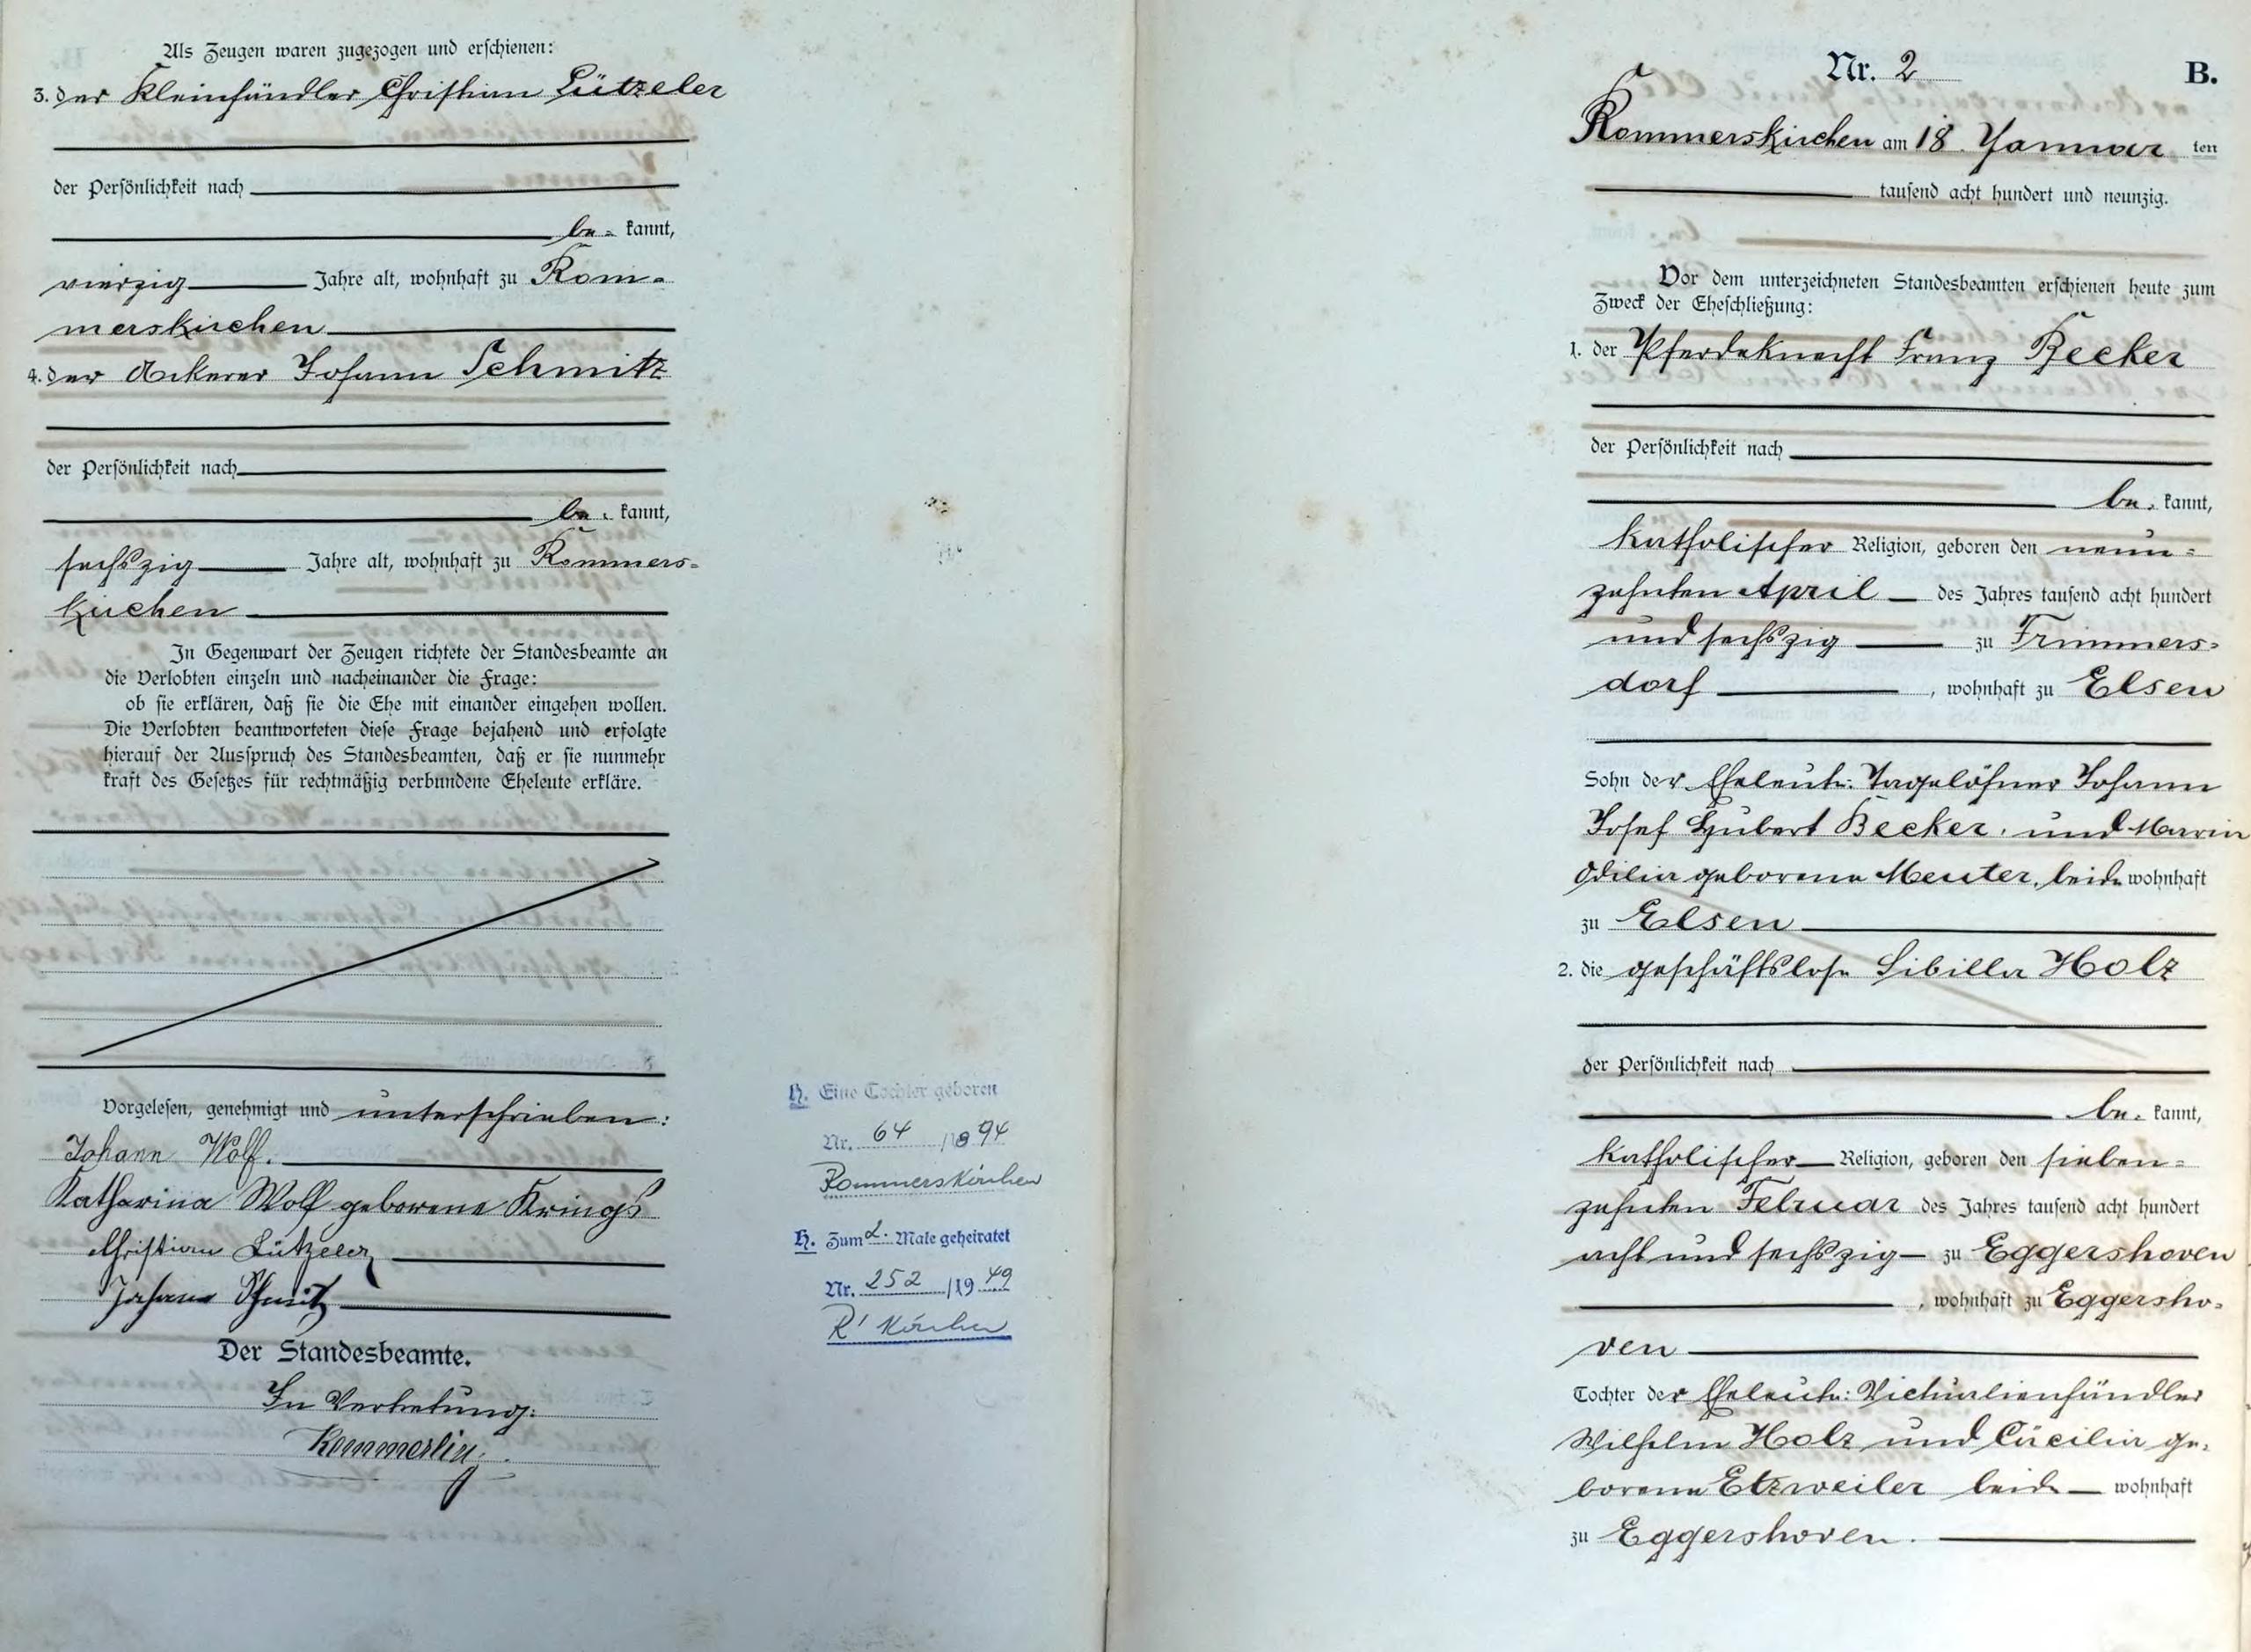 Als Zeugen waren zugezogen und erschienen:
3. der Kleinhändler Christian Lützeler
der Persönlichkeit nach
be= kannt,
vierzig Jahre alt, wohnhaft zu Rom=
merskirchen
4. der Ackerer Johann Schmitz
der Persönlichkeit nach
be= kannt,
sechszig Jahre alt, wohnhaft zu Rommers=
kirchen
In Gegenwart der Zeugen richtete der Standesbeamte an
die Verlobten einzeln und nacheinander die Frage:
ob sie erklären, daß sie die Ehe mit einander eingehen wollen.
Die Verlobten beantworteten diese Frage bejahend und erfolgte
hierauf der Ausspruch des Standesbeamten, daß er sie nunmehr
kraft des Gesetzes für rechtmäßig verbundene Eheleute erkläre.
Vorgelesen, genehmigt und unterschrieben:
Johann Wolf.
Katharina Wolf geborene Krings
Christian Lützeler
Johann Schmitz
Der Standesbeamte.
In Vertretung:
H. Eine Tochter geboren
Nr. 64 /1894
Rommerskirchen
H. Zum 2. Male geheiratet
Nr. 252 /1949
R'kirchen
Nr. 2 B.
Rommerskirchen am 18. Januar ten
tausend acht hundert und neunzig.
Vor dem unterzeichneten Standesbeamten erschienen heute zum
Zweck der Eheschließung:
1. der Pferdeknecht Franz Becker
der Persönlichkeit nach
be= kannt,
katholischer Religion, geboren den neun=
zehnten April des Jahres tausend acht hundert
und sechszig zu Frimmers=
dorf , wohnhaft zu Elsen
Sohn der Eheleute: Tagelöhner Johann
Josef Hubert Becker und Maria
Odilia geborene Meuter, beide wohnhaft
zu Elsen
2. die geschäftslose Sibilla Holz
der Persönlichkeit nach
be= kannt,
katholischer Religion, geboren den sieben=
zehnten Februar des Jahres tausend acht hundert
acht und sechszig zu Eggershoven
, wohnhaft zu Eggersho=
ven
Tochter der Eheleute: Victualienhändler
Wilhelm Holz und Cäcilia ge=
borene Etzweiler beide wohnhaft
zu Eggershoven.